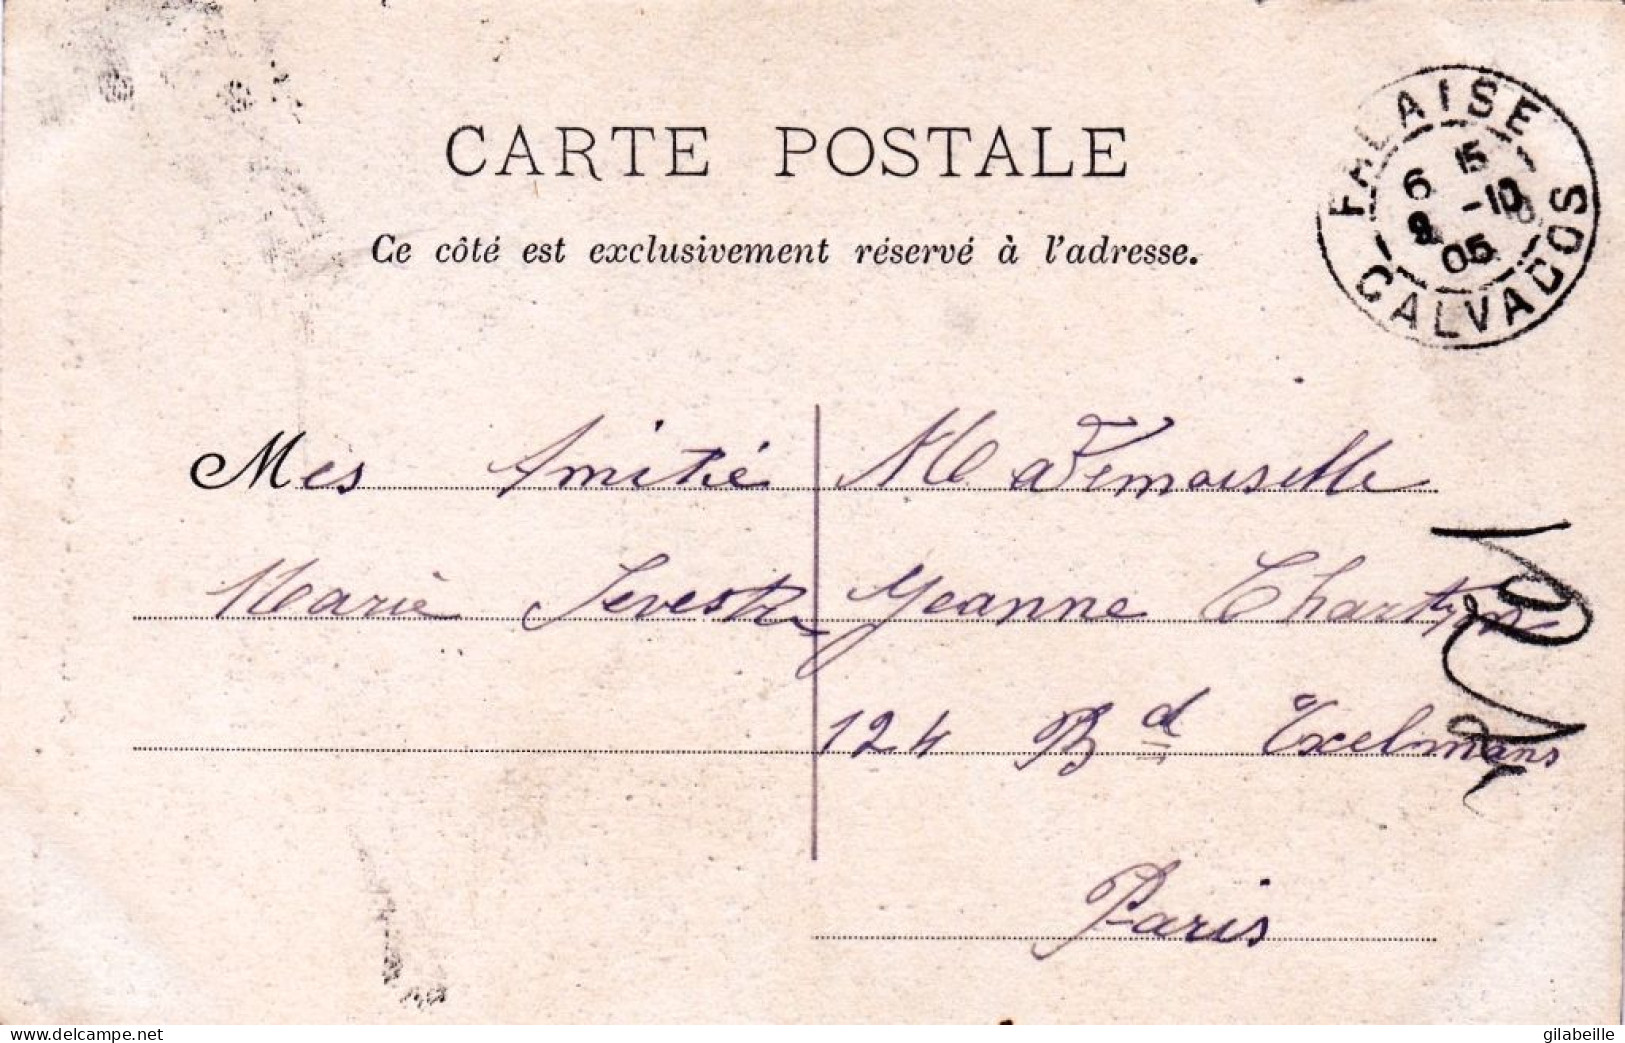 CARTE POSTALE
Ce côté est exclusivement réservé à l'adresse.
FALAISE
6 15
9 -10
05
CALVADOS
Mes Amitié
Marie Sevestre
Mademoiselle
Jeanne
124 Bd Exelmans
Paris
www.delcampe.net
gilabeille